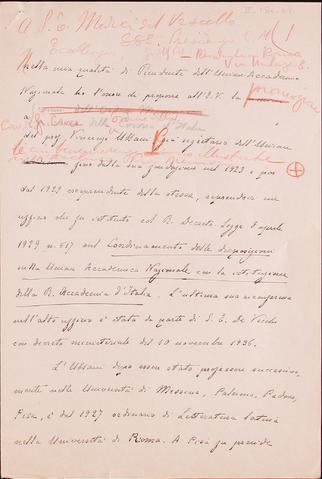 A S. E. Medici del Vascello
Nella mia qualità di Presidente dell'Unione Accademica
Nazionale ho l'onore di proporre all'E.V. la promozione
a
della Corona d'Italia
del prof. Vincenzo Ussani già segretario dell'Unione
fino dalla sua fondazione nel 1923 e poi
dal 1929 vicepresidente della stessa, coprendone un
ufficio che fu istituito col R. Decreto Legge 4 aprile
1929 n. 517 sul Coordinamento delle disposizioni
sulla Unione Accademica Nazionale con la istituzione
della R. Accademia d'Italia. L'ultima sua riconferma
nell'alto ufficio è stata da parte di S. E. De Vecchi
con decreto ministeriale del 10 novembre 1936.
L'Ussani dopo essere stato professore successiva-
mente nelle Università di Messina, Palermo, Padova,
Pisa, è dal 1927 ordinario di Letteratura latina
nella Università di Roma. A Pisa fu preside